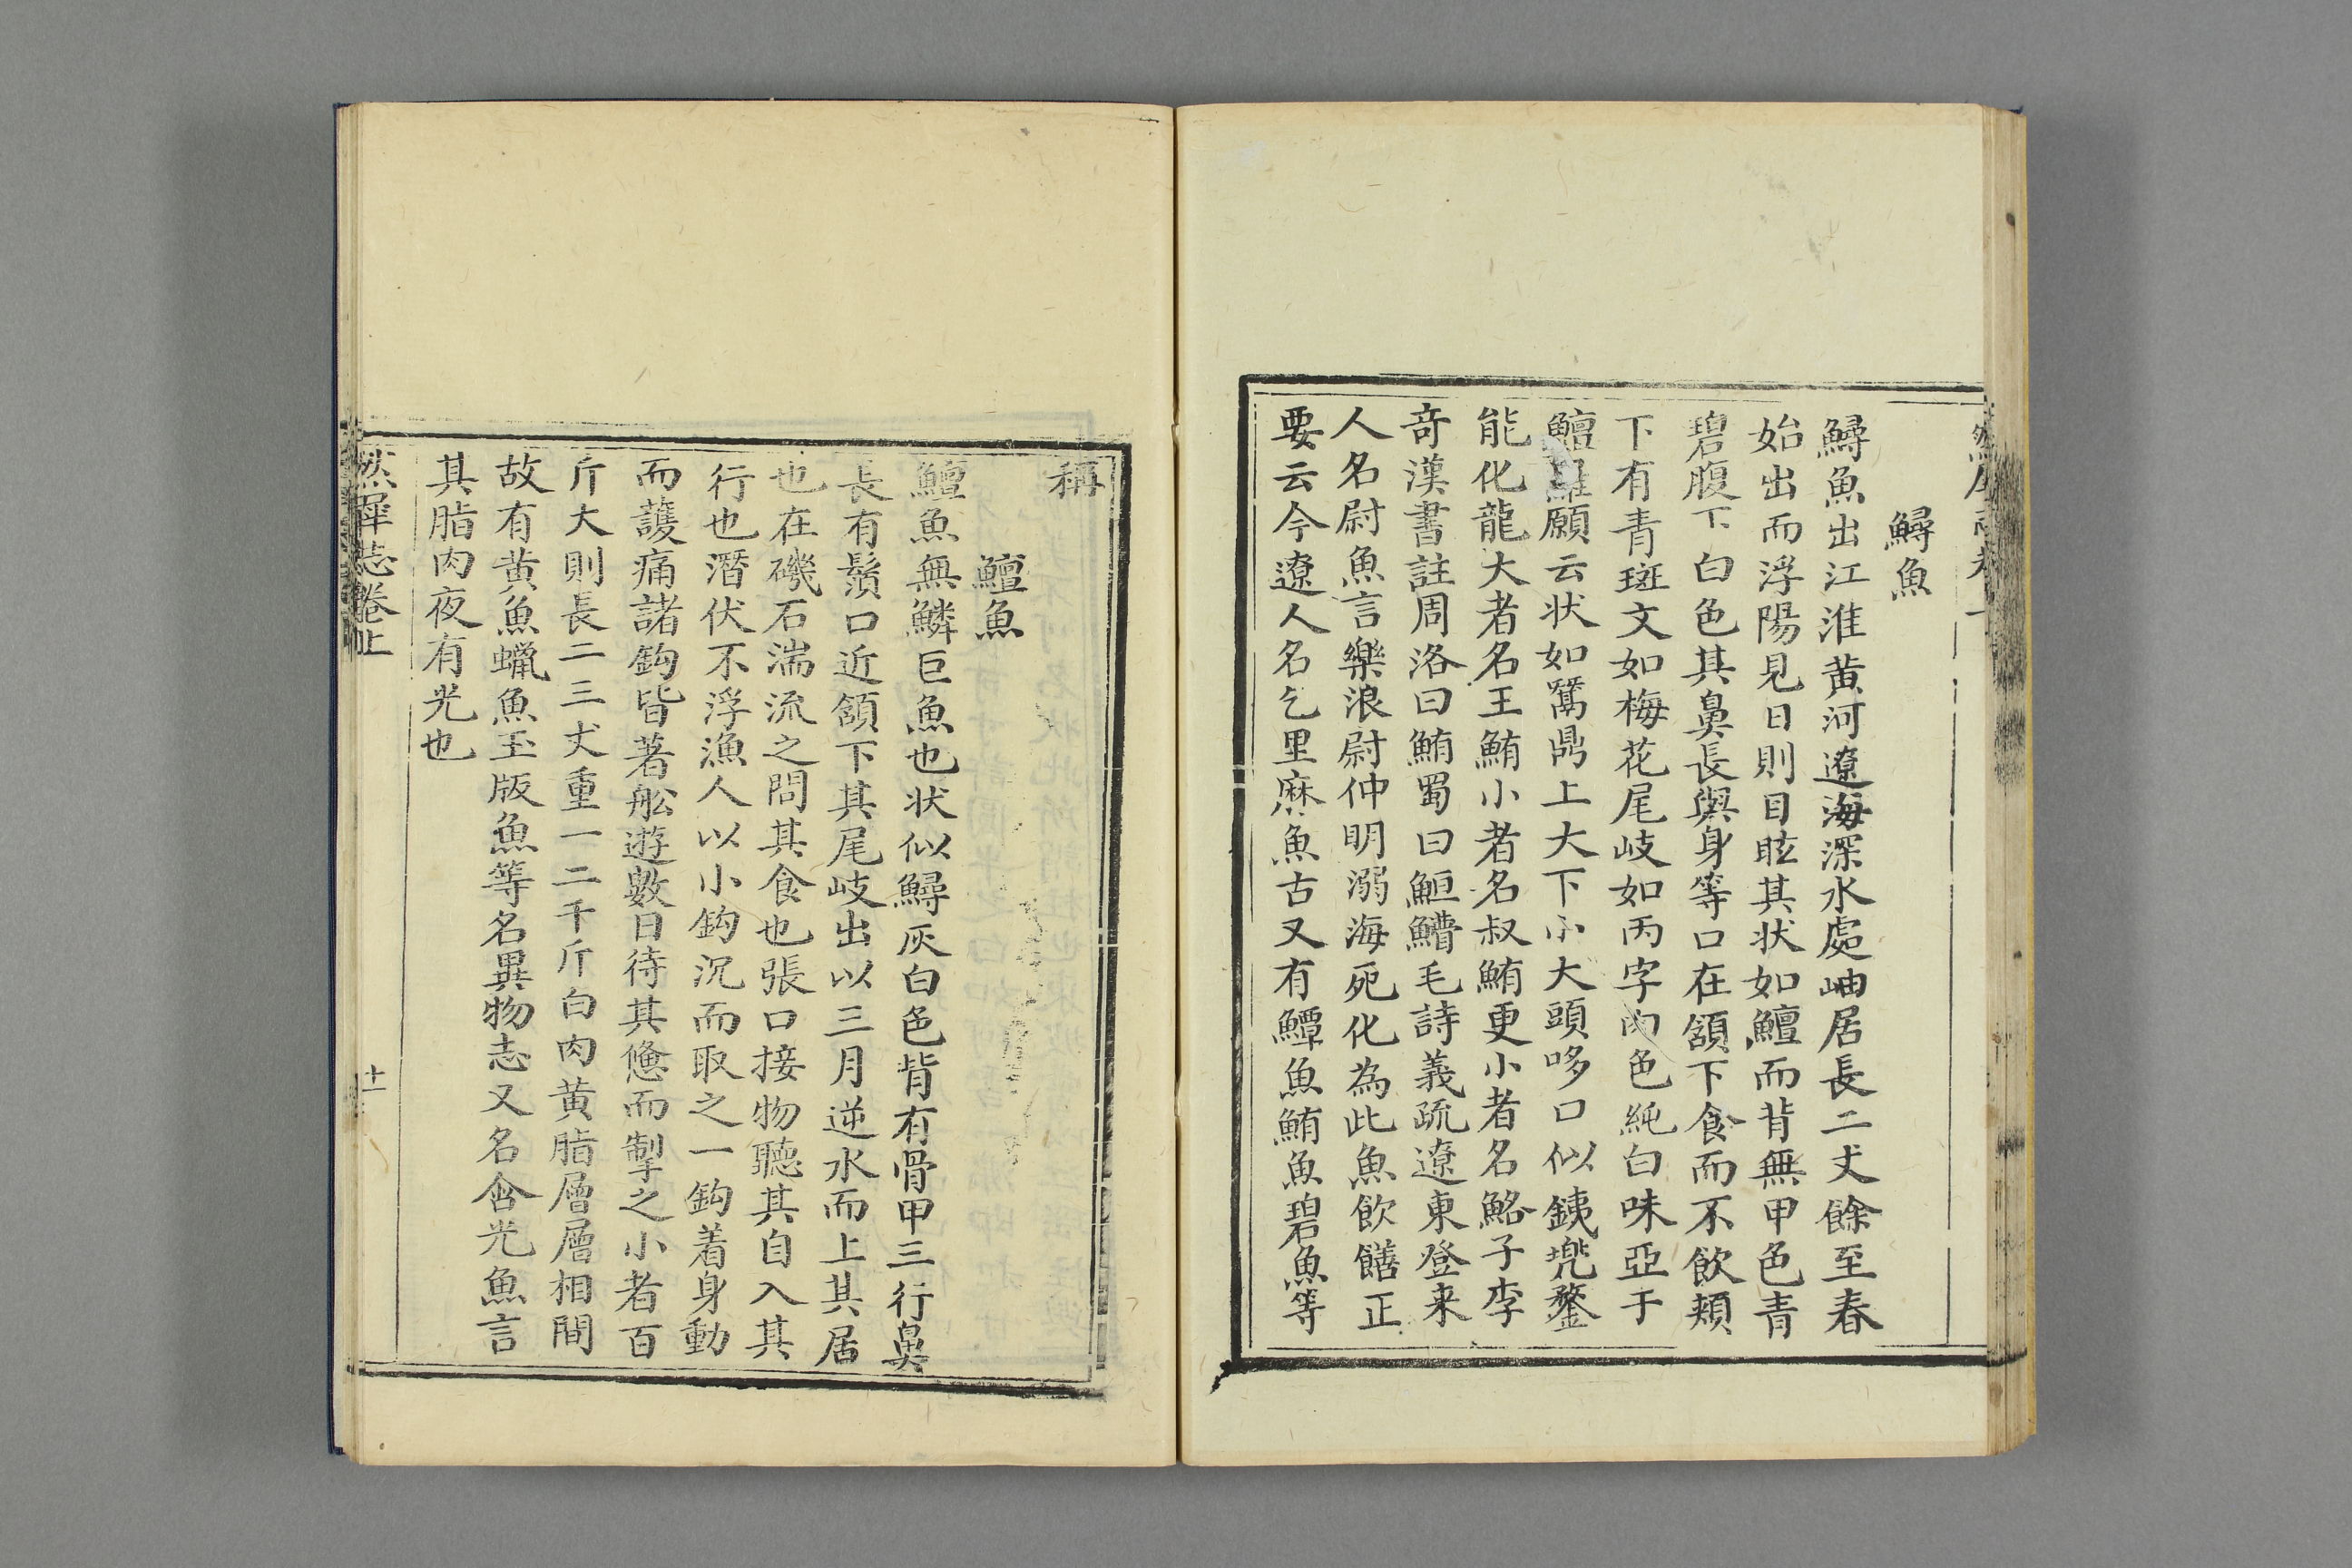 鱘魚
鱘魚出江淮黄河遼海深水處岫居長二丈餘至春
始出而浮陽見日則目眩其状如鱣而背無甲色青
碧腹下白色其鼻長與身等口在頷下食而不飲頬
下有青斑文如梅花尾岐如丙字肉色純白味亞于
鱣羅願云状如鬵鼎上大下小大頭哆口似鉄兠鍪
能化龍大者名王鮪小者名叔鮪更小者名鮥子李
竒漢書註周洛曰鮪蜀曰䱭䲍毛詩義疏遼東登来
人名尉魚言樂浪尉仲明溺海死化為此魚飲饍正
要云今遼人名乞里麻魚古又有鱏魚鮪魚碧魚等
稱
鱣魚
鱣魚無鱗巨魚也状似鱘灰白色背有骨甲三行鼻
長有鬚口近頷下其尾岐出以三月逆水而上其居
也在磯石湍流之間其食也張口接物聽其自入其
行也潛伏不浮漁人以小鈎沉而取之一鈎着身動
而護痛諸鈎皆著舩遊數日待其憊而掣之小者百
斤大則長二三丈重一二千斤白肉黄脂層層相間
故有黄魚蝋魚玉版魚等名異物志又名含光魚言
其脂肉夜有光也
然犀志卷上
十一